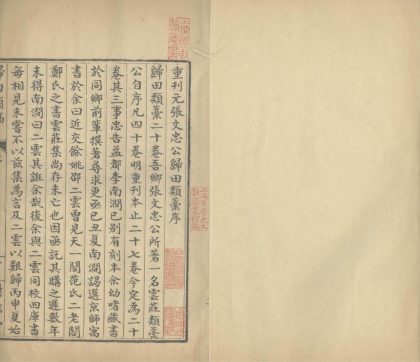 重刊元張文忠公歸田類藁序
歸田類藁二十卷吾鄉張文忠公所著一名雲莊類藁
公自序凡四十卷明重刊本止二十七卷今定為二十
卷其三事忠告益都李南澗已別有刻本余幼嗜藏書
於同鄉前輩撰著尋求更亟己丑夏南澗謁選京師寓
書於余曰近交餘姚邵二雲曾見天一閣范氏二老閣
鄭氏之書雲莊集尚存未亡也因亟託其購之遲數年
未得南澗曰二雲其誑余哉後余與二雲同校四庫書
每相見未嘗不以茲集為言及二雲以艱歸丙申夏始
歸田類藁